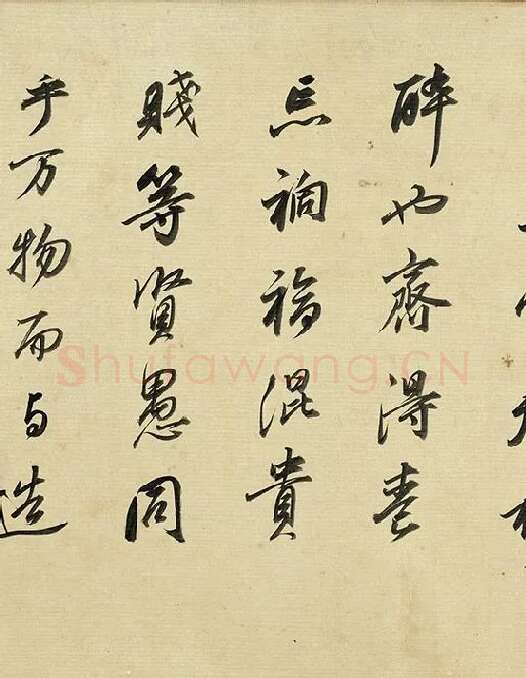 醉也齊得喪
忘禍福混貴
賤等賢愚同
乎万物而与造
Shufawang.CN